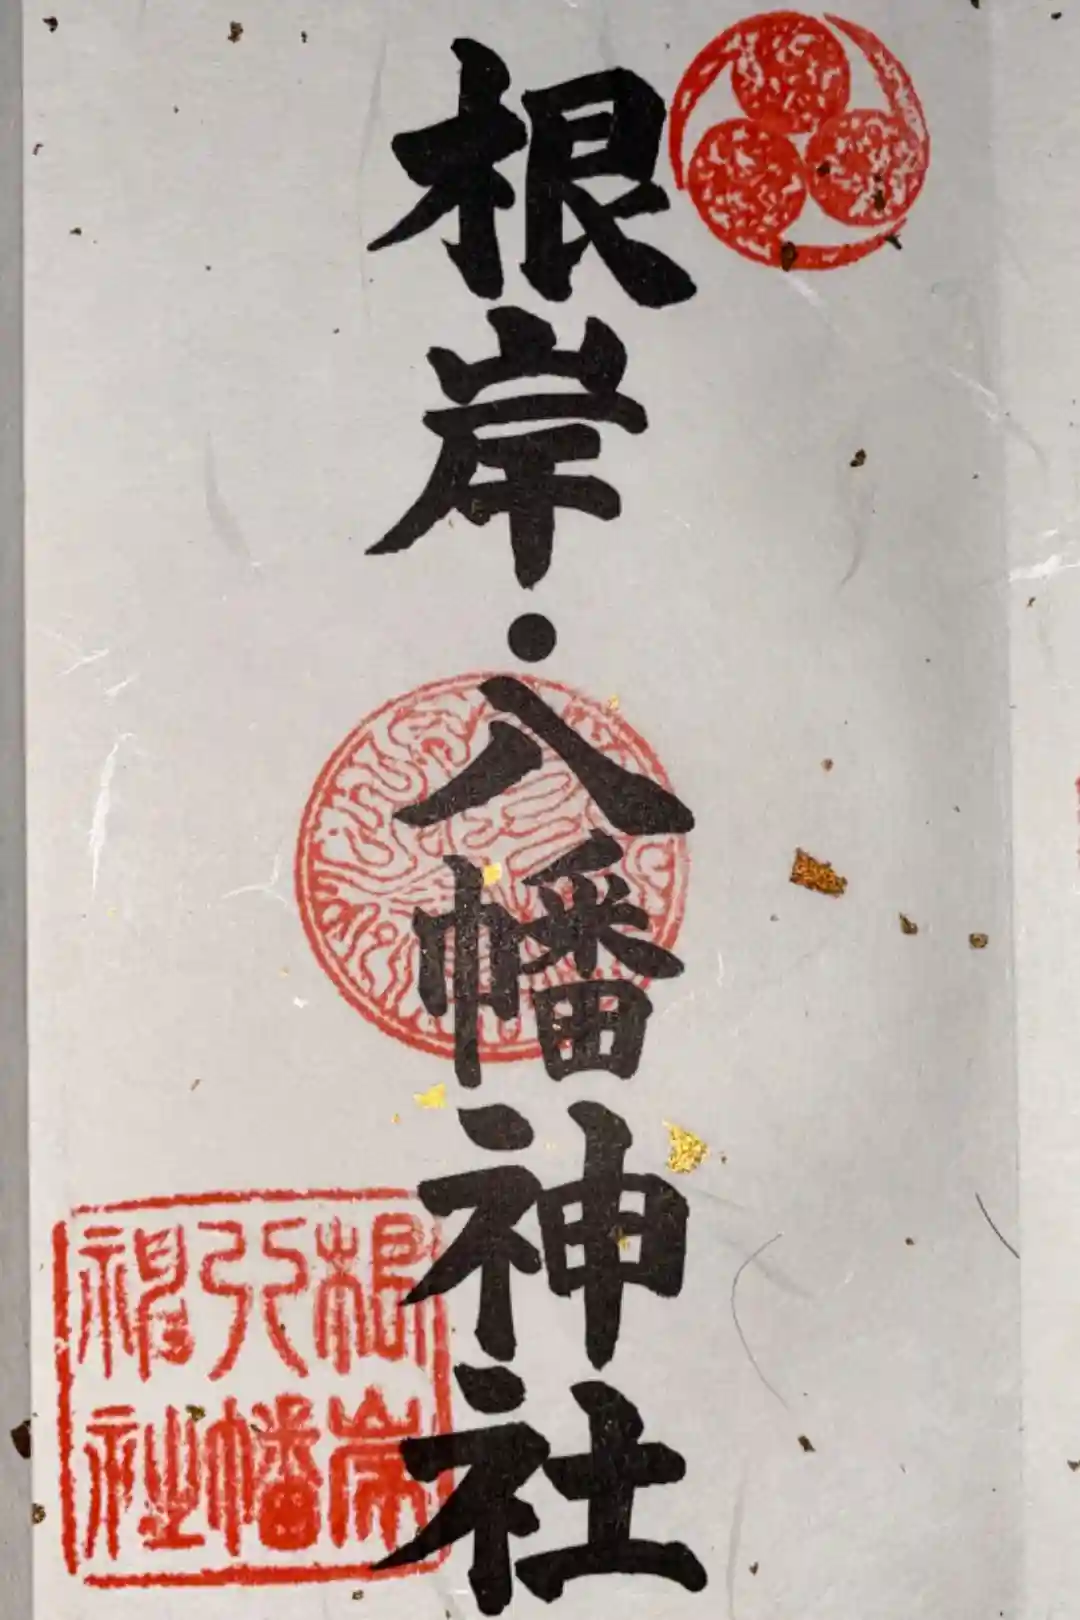 根岸・八幡神社
根岸
八幡
神社